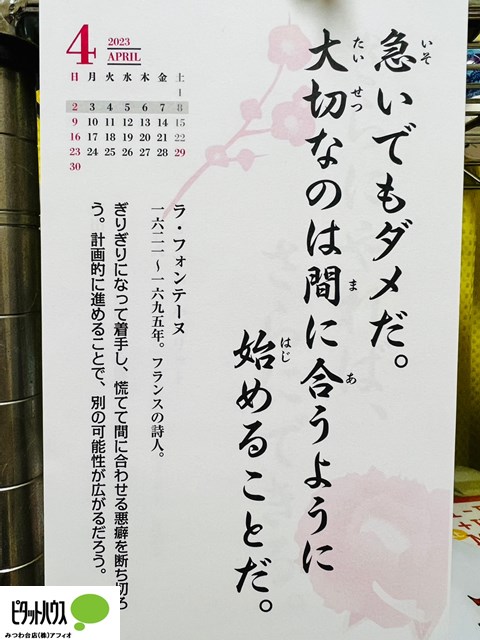 4
2023
APRIL
日 月 火 水 木 金 土
1
2 3 4 5 6 7 8
9 10 11 12 13 14 15
16 17 18 19 20 21 22
23 24 25 26 27 28 29
30
急いでもダメだ。
いそ
大切なのは間に合うように
たい せつ ま あ
始めることだ。
はじ
ラ・フォンテーヌ
一六二一〜一六九五年。フランスの詩人。
ぎりぎりになって着手し、慌てて間に合わせる悪癖を断ち切ろ
う。計画的に進めることで、別の可能性が広がるだろう。
ピタットハウス
みつわ台店(株)アフィオ